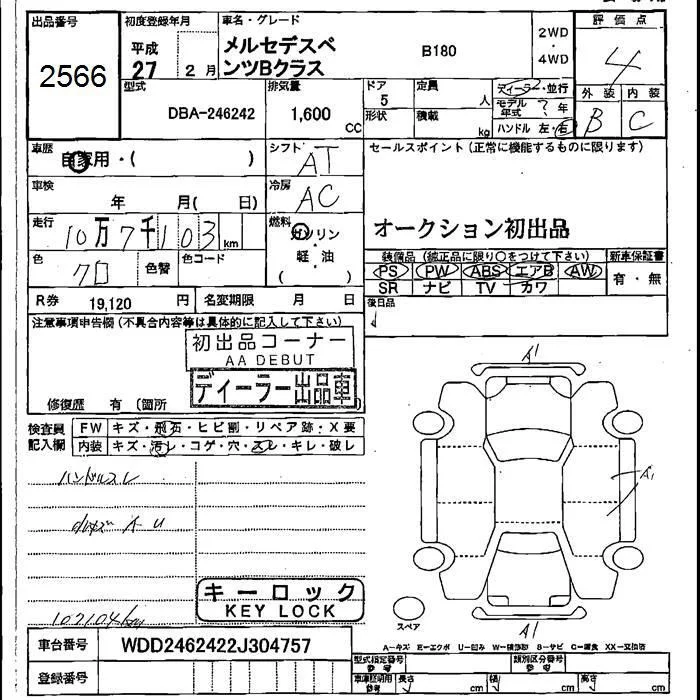 出品番号
2566
初度登録年月
平成
27 2月
車名・グレード
メルセデスベ
ンツBクラス
B180
2WD
・
4WD
評価点
4
外装 内装
B C
型式
DBA-246242
排気量
1,600
CC
ドア
5
定員
人
形状 積載
kg
ディーラー・並行
モデル年式 ? 年
ハンドル 左・右
車歴
自家用・( )
シフト
AT
車検
年 月( 日)
冷房
AC
走行
10万7千103
km
燃料
ガソリン
・
軽油
色
クロ
色替
色コード
R券 19,120 円
名変期限 月 日
セールスポイント(正常に機能するものに限ります)
オークション初出品
装備品(純正品に限り○をつけて下さい)
PS PW ABS エアB AW
SR ナビ TV カワ
新車保証書
有・無
後日品
注意事項申告欄(不具合内容等は具体的に記入して下さい)
初出品コーナー
AA DEBUT
ディーラー出品車
修復歴 有(箇所
検査員
記入欄
FW キズ・飛石・ヒビ割・リペア跡・X要
内装 キズ・汚レ・コゲ・穴・スレ・キレ・破レ
ハンドルスレ
107104km
キーロック
KEY LOCK
A1
A1
A1
スペア
A-キズ E-エクボ U-凹み W-補修跡 S-サビ C-腐食 XX-交換済
車台番号
WDD2462422J304757
登録番号
型式指定番号
参考
類別区分番号
参考
車庫証明用
参考
長さ cm 幅 cm 高さ cm